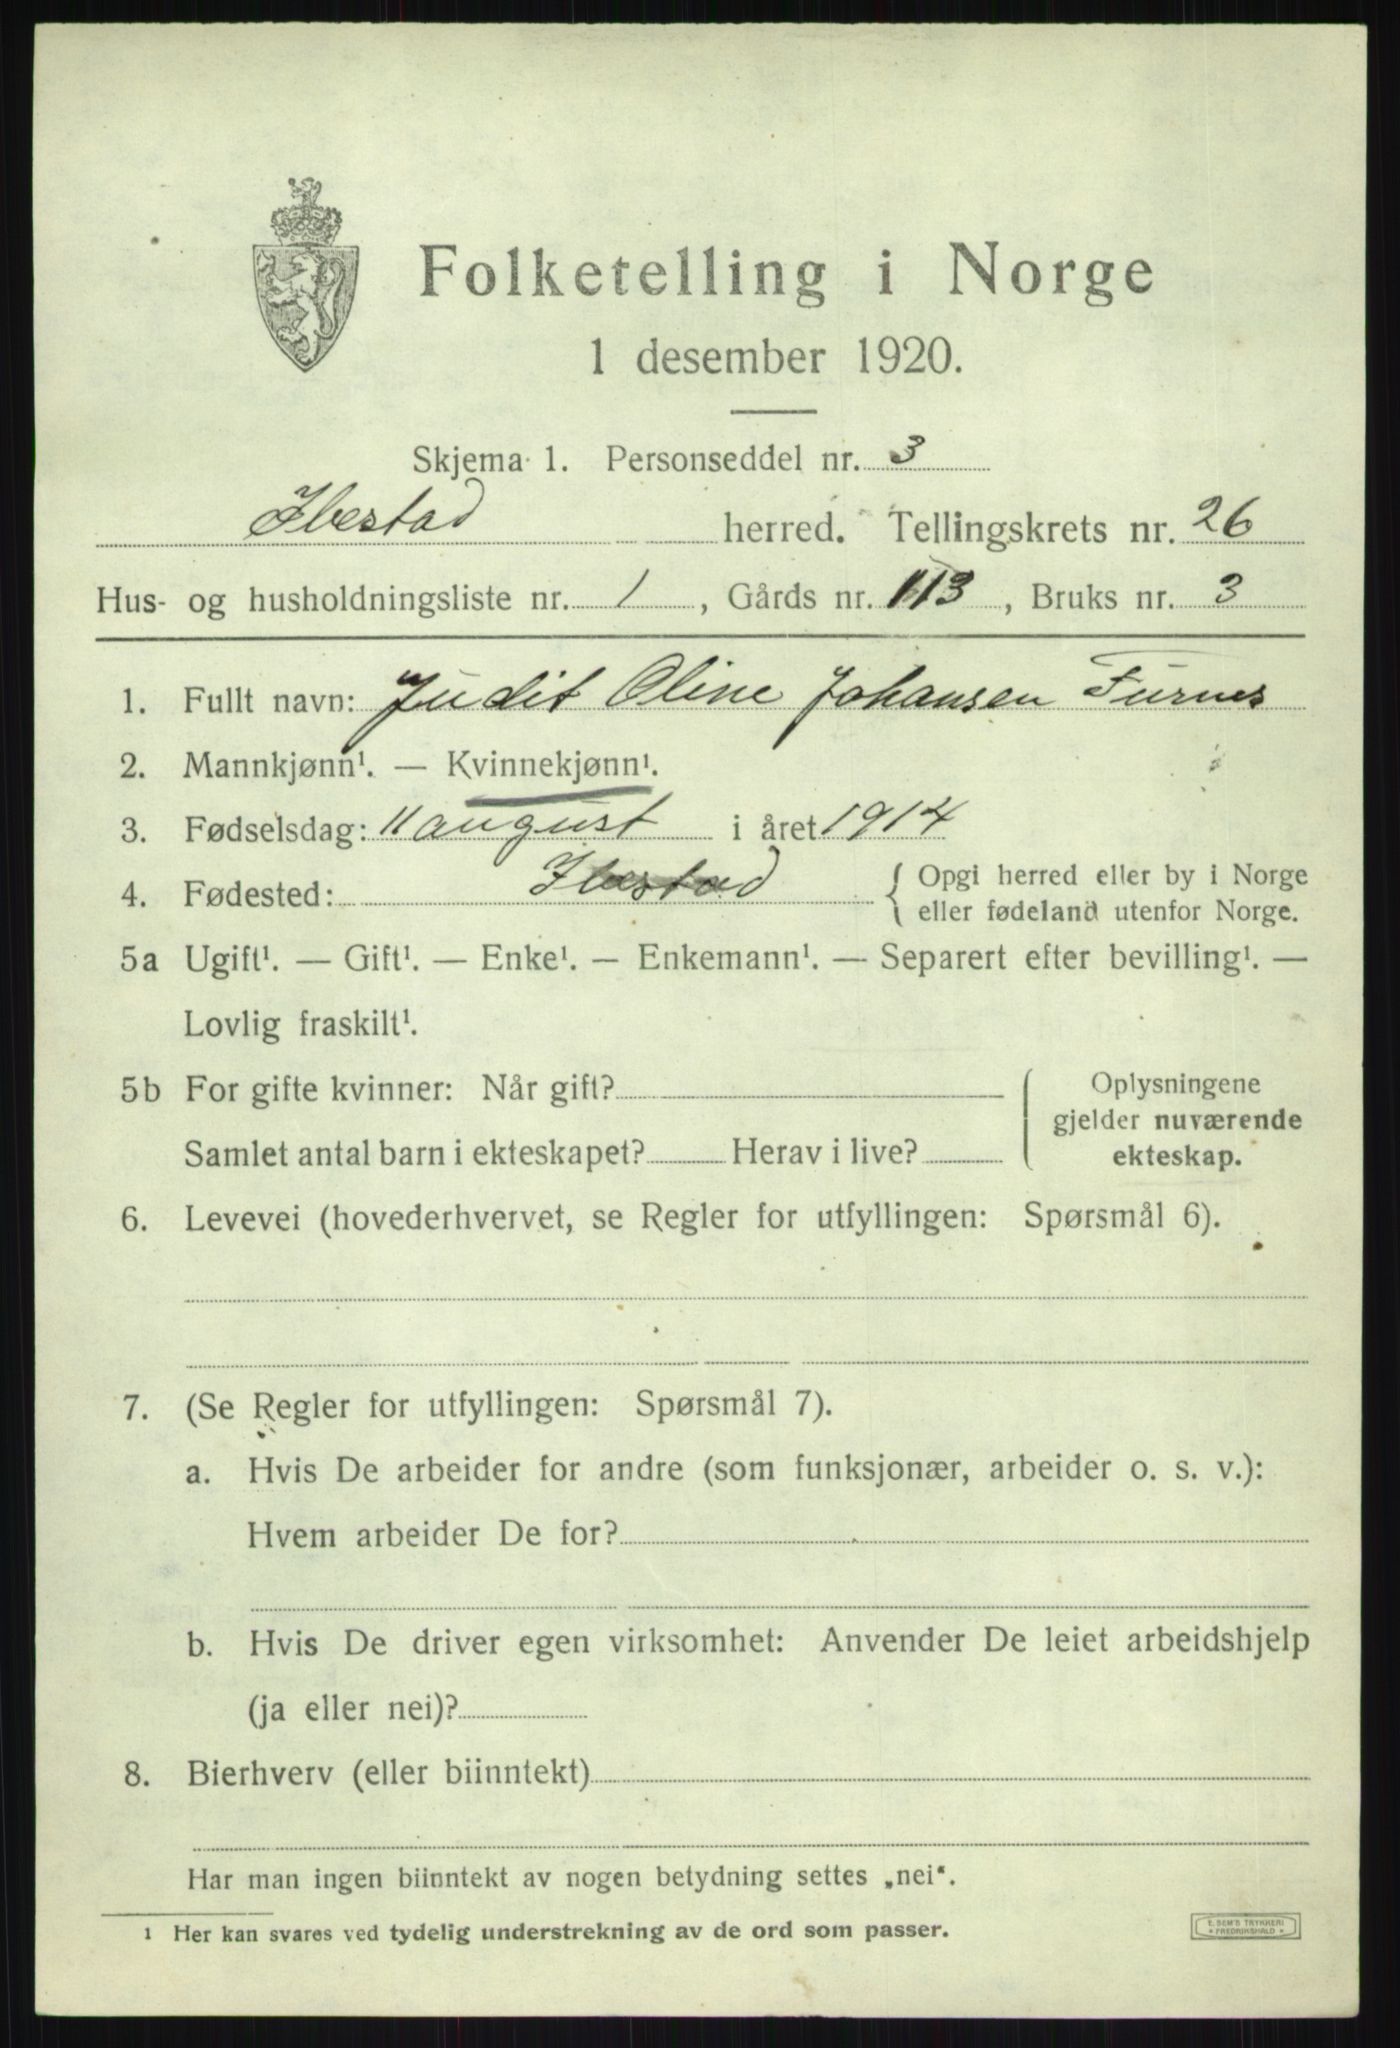 Folketelling i Norge
1 desember 1920.
Skjema 1. Personseddel nr. 3
Ibestad herred. Tellingskrets nr. 26
Hus- og husholdningsliste nr. 1, Gårds nr. 113, Bruks nr. 3
1. Fullt navn: Judit Oline Johansen Furnes
2. Mannkjønn¹. — Kvinnekjønn¹.
3. Fødselsdag: 11 august i året 1914
4. Fødested: Ibestad { Opgi herred eller by i Norge
eller fødeland utenfor Norge.
5a Ugift¹. — Gift¹. — Enke¹. — Enkemann¹. — Separert efter bevilling¹. —
Lovlig fraskilt¹.
5b For gifte kvinner: Når gift?
Samlet antal barn i ekteskapet? Herav i live?
Oplysningene
gjelder nuværende
ekteskap.
6. Levevei (hovederhvervet, se Regler for utfyllingen: Spørsmål 6).
7. (Se Regler for utfyllingen: Spørsmål 7).
a. Hvis De arbeider for andre (som funksjonær, arbeider o. s. v.):
Hvem arbeider De for?
b. Hvis De driver egen virksomhet: Anvender De leiet arbeidshjelp
(ja eller nei)?
8. Bierhverv (eller biinntekt)
Har man ingen biinntekt av nogen betydning settes „nei“.
1 Her kan svares ved tydelig understrekning av de ord som passer.
E. SEM'S TRYKKERI
* FREDRIKSHALD *